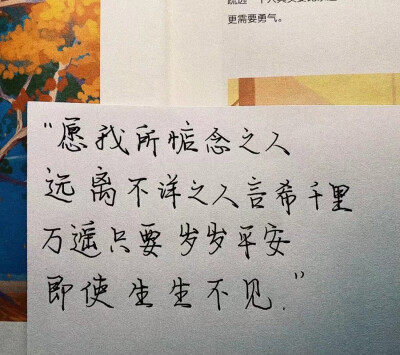 更需要勇气。
“愿我所惦念之人
远离不详之人言希千里
万遥只要岁岁平安
即使生生不见.”